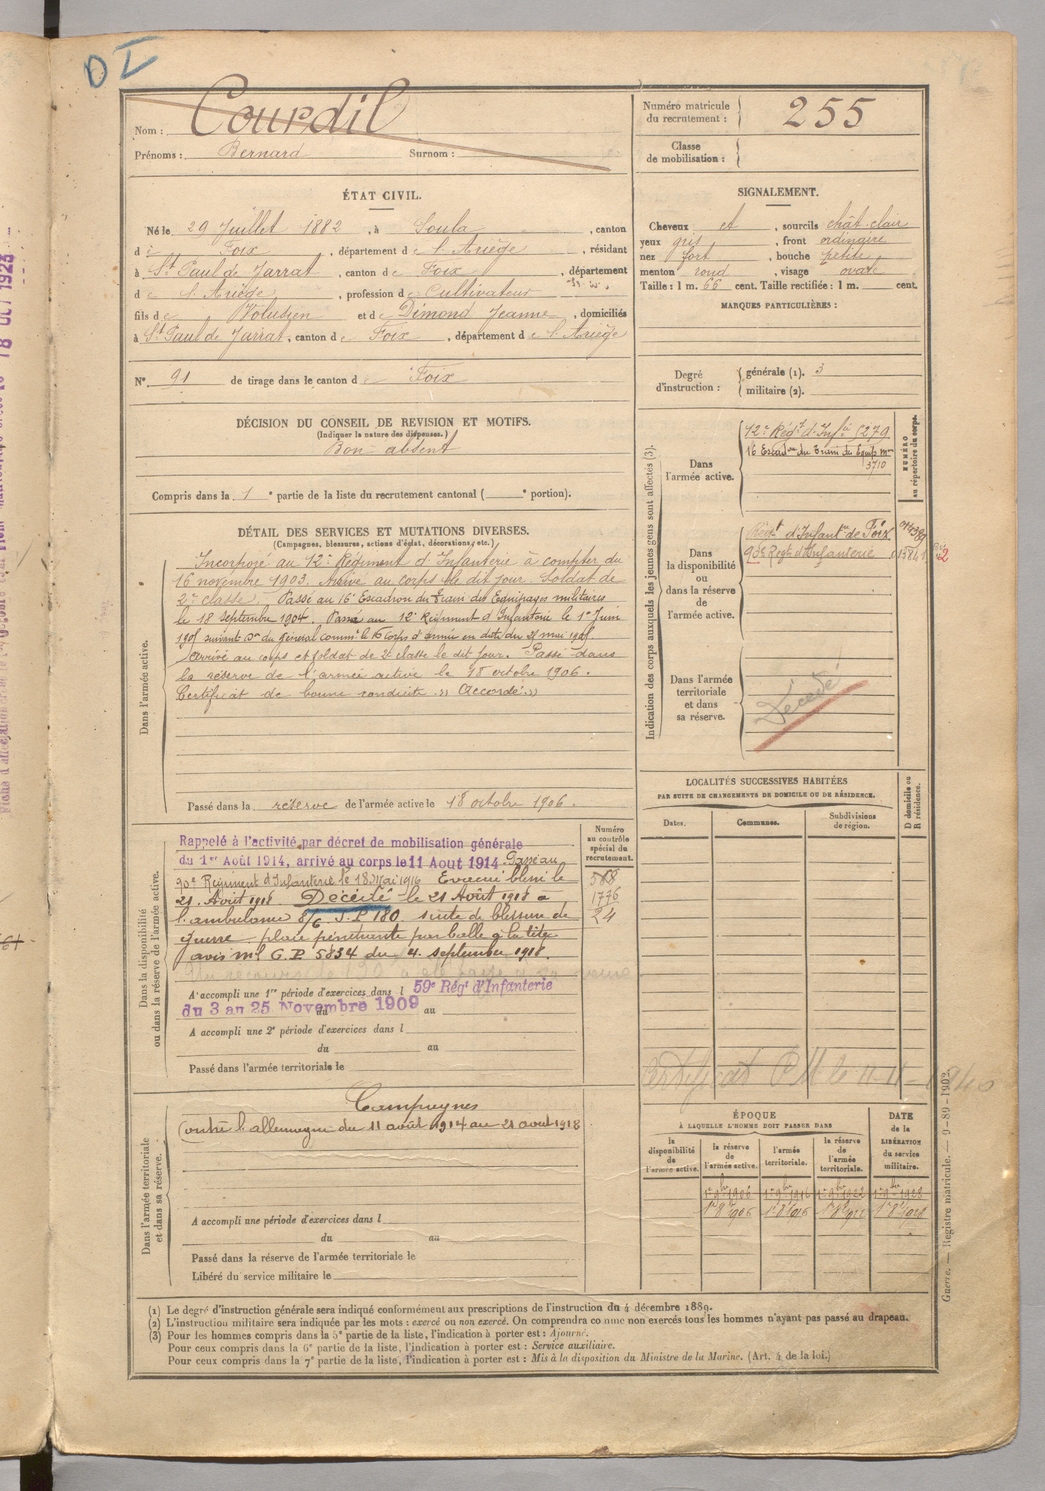 DI
Nom : Courdil
Prénoms : Bernard Surnom :
Numéro matricule du recrutement : 255
Classe de mobilisation :
ÉTAT CIVIL.
Né le 29 Juillet 1882, à Soula, canton
d e Foix, département d e l'Ariège, résidant
à St Paul de Jarrat, canton d e Foix, département
d e l'Ariège, profession d e Cultivateur
fils d e Volusien et d e Dimond Jeanne, domiciliés
à St Paul de Jarrat, canton d e Foix, département d e l'Ariège
N° 91 de tirage dans le canton d e Foix
SIGNALEMENT.
Cheveux et, sourcils chât. clair
yeux gris, front ordinaire
nez fort, bouche petite
menton rond, visage ovale
Taille : 1 m. 66 cent. Taille rectifiée : 1 m. cent.
MARQUES PARTICULIÈRES :
Degré d'instruction : générale (1). 3
militaire (2).
DÉCISION DU CONSEIL DE REVISION ET MOTIFS.
(Indiquer la nature des dispenses.)
Bon absent
Compris dans la 1e partie de la liste du recrutement cantonal ( e portion).
DÉTAIL DES SERVICES ET MUTATIONS DIVERSES.
(Campagnes, blessures, actions d'éclat, décorations, etc.)
Dans l'armée active.
Incorporé au 12e Régiment d'Infanterie à compter du
16 novembre 1903. Arrivé au corps le dit jour. Soldat de
2e classe. Passé au 16e Escadron du Train des Equipages militaires
le 18 septembre 1904. Passé au 12e Régiment d'Infanterie le 1er Juin
1905 suivant on du général commt le 16 Corps d'armée en date du 25 mai 1905.
Arrivé au corps et soldat de 2e classe le dit jour. Passé dans
la réserve de l'armée active le 18 octobre 1906.
Certificat de bonne conduite « Accordé »
Passé dans la réserve de l'armée active le 18 octobre 1906.
Indication des corps auxquels les jeunes gens sont affectés (3).
NUMÉRO au répertoire du corps.
Dans l'armée active.
12e Régt d'Infie 1279
16 Escadon du Train des Equip. mres
3710
Dans la disponibilité ou dans la réserve de l'armée active.
Régt d'Infantie de Foix
90e Régt d'Infanterie
Dans l'armée territoriale et dans sa réserve.
Décédé
Dans la disponibilité ou dans la réserve de l'armée active.
Rappelé à l'activité par décret de mobilisation générale
du 1er Août 1914, arrivé au corps le 11 Aout 1914. Passé au
90e Régiment d'Infanterie le 18 Mai 1916 Evacué blessé le
21 Août 1918. Décédé le 21 Août 1918 à
l'ambulance 8/6 S.P. 180 suite de blessure de
guerre - plaie pénétrante par balle à la tête
avis ml G.P. 5834 du 4 septembre 1918.
A accompli une 1re période d'exercices dans l 59e Régt d'Infanterie
du 3 au 25 Novembre 1909 au
A accompli une 2e période d'exercices dans l
du au
Passé dans l'armée territoriale le
Numéro au contrôle spécial du recrutement.
588
1776
24
LOCALITÉS SUCCESSIVES HABITÉES
PAR SUITE DE CHANGEMENTS DE DOMICILE OU DE RÉSIDENCE.
Dates. Communes. Subdivisions de région. D domicile ou R résidence.
Certificat PM le 11-11-1940
Dans l'armée territoriale et dans sa réserve.
Campagnes
Contre l'allemagne du 11 août 1914 au 21 août 1918
A accompli une période d'exercices dans l
du au
Passé dans la réserve de l'armée territoriale le
Libéré du service militaire le
ÉPOQUE
À LAQUELLE L'HOMME DOIT PASSER DANS
la disponibilité de l'armée active. la réserve de l'armée active. l'armée territoriale. la réserve de l'armée territoriale.
DATE de la LIBÉRATION du service militaire.
1er 9bre 1906 1er 9bre 1916 1er 9bre 1922 1er 9bre 1928
Guerre. — Registre matricule. — 9-89-1902.
(1) Le degré d'instruction générale sera indiqué conformément aux prescriptions de l'instruction du 4 décembre 1889.
(2) L'instruction militaire sera indiquée par les mots : exercé ou non exercé. On comprendra comme non exercés tous les hommes n'ayant pas passé au drapeau.
(3) Pour les hommes compris dans la 5e partie de la liste, l'indication à porter est : Ajourné.
Pour ceux compris dans la 6e partie de la liste, l'indication à porter est : Service auxiliaire.
Pour ceux compris dans la 7e partie de la liste, l'indication à porter est : Mis à la disposition du Ministre de la Marine. (Art. 4 de la loi.)